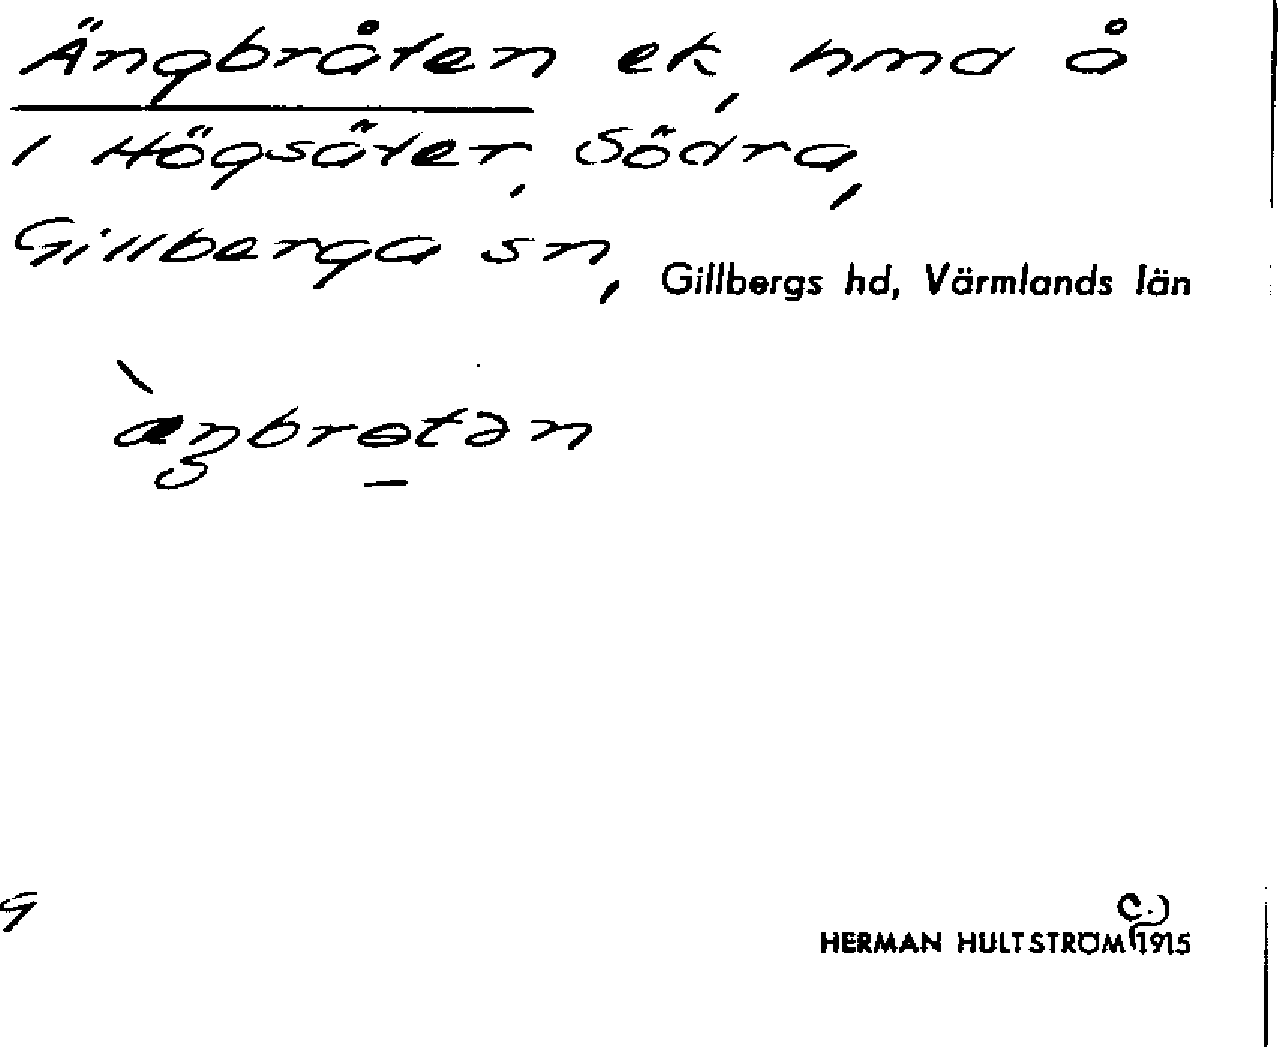 Ängbråten ek, hmd å
1 Högsäter, Södra,
Gillberga sn, Gillbergs hd, Värmlands län
æ̀ŋbrɵtən
g
C.)
HERMAN HULTSTRÖM 1915